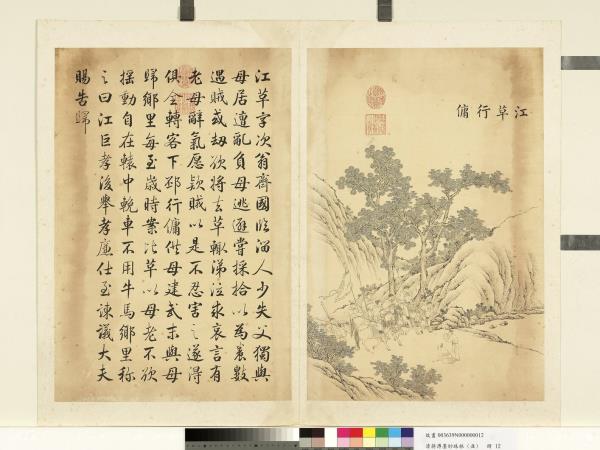 江革行傭
江革字次翁齊國臨淄人少失父獨與
母居遭亂負母逃避嘗採拾以為養數
遇賊或劫欲將去革輒涕泣求哀言有
老母辭氣愿款賊以是不忍害之遂得
俱全轉客下邳行傭供母建武末與母
歸鄉里每至歲時案比革以母老不欲
搖動自在轅中輓車不用牛馬鄉里稱
之曰江巨孝後舉孝廉仕至諫議大夫
賜告歸
故畫 003639N000000012
墨妙珠林 冊 12